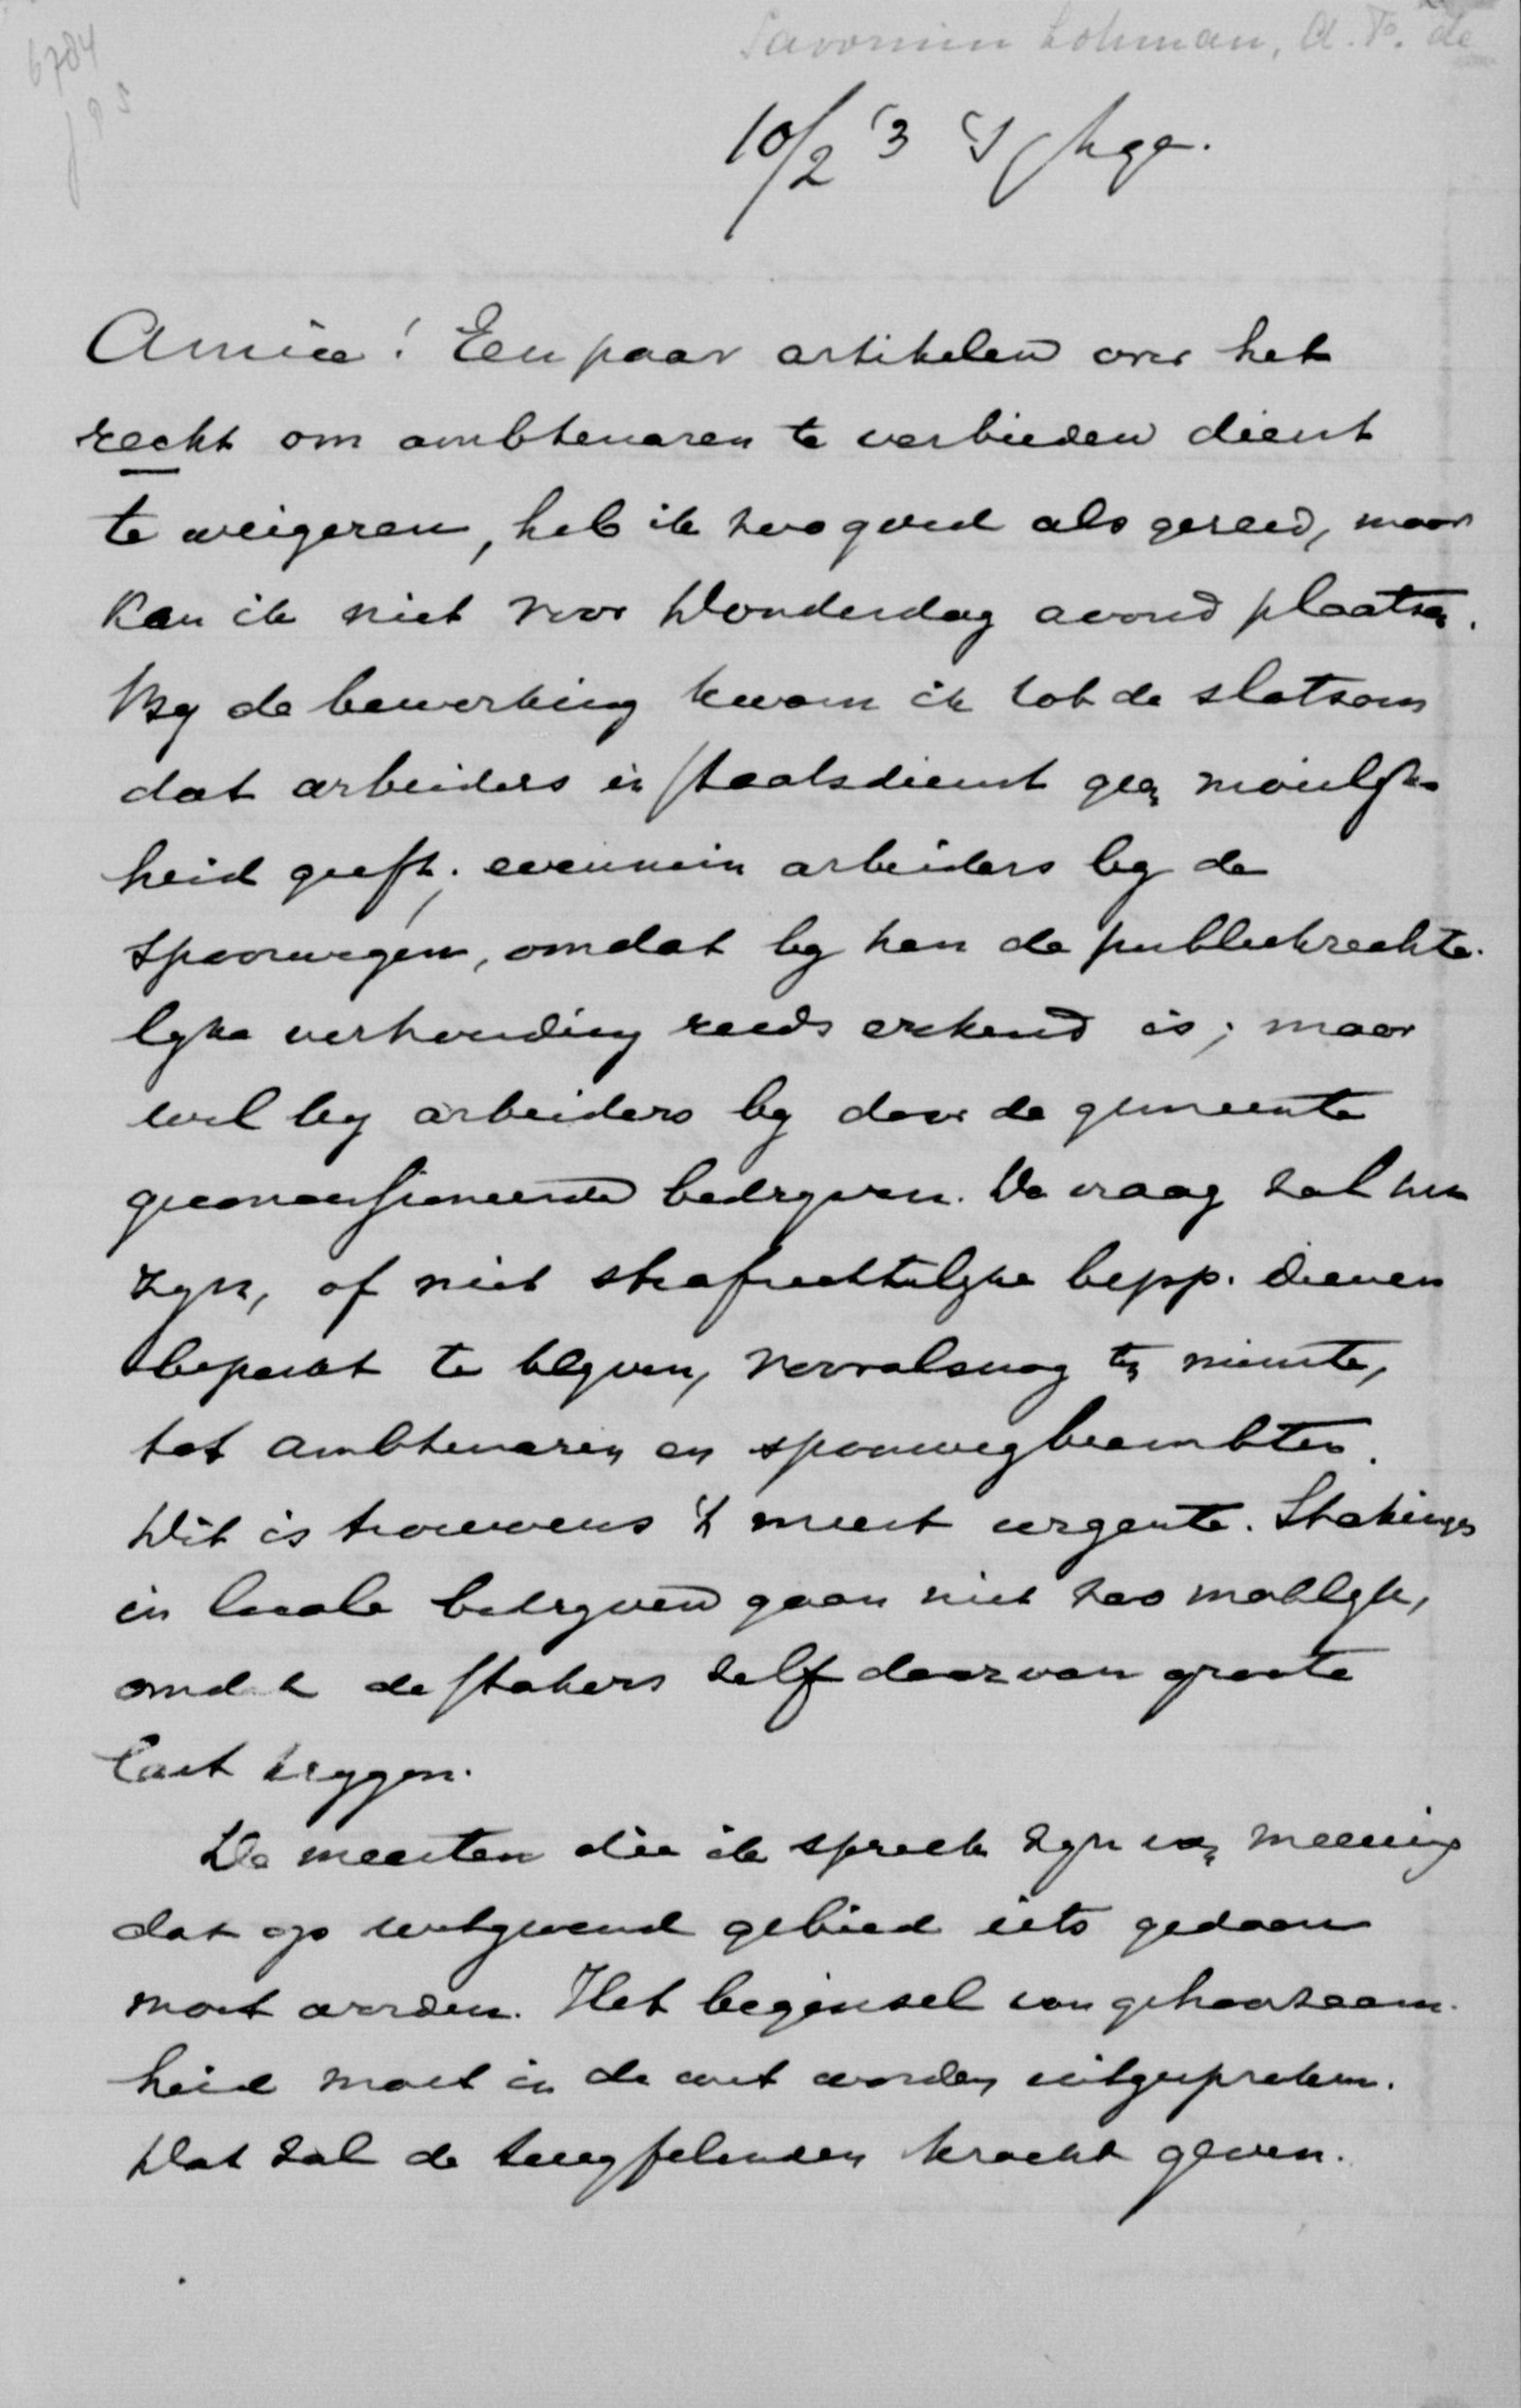 6784
Savornin Lohman, A. F. de
10/2 '3 's Hage.
Amice! Een paar artikelen over het
recht om ambtenaren te verbieden dienst
te weigeren, heb ik zoo goed als gereed, maar
kan ik niet voor Donderdag avond plaatsen.
By de bewerking kwam ik tot de slotsom
dat arbeiders in staatsdienst geen moeilyk-
heid geeft; evenmin arbeiders by de
spoorwegen, omdat by hen de publiekrechte-
lyke verhouding reeds erkend is; maar
wel by arbeiders by door de gemeente
geconcessioneerde bedryven. De vraag zal
zyn, of niet strafrechtelyke bepp. dienen
beperkt te blyven, vooralsnog ten minste,
tot ambtenaren en spoorwegbeambten.
Dit is trouwens 't meest urgente. Stakingen
in locale bedryven gaan niet zoo maklyk,
omdat de stakers zelf daarvan groote
last krygen.
De meesten die ik spreek zyn van meening
dat op wetgevend gebied iets gedaan
moet worden. Het beginsel van gehoorzaam-
heid moet in de wet worden uitgesproken.
Dat zal de kracht geven.